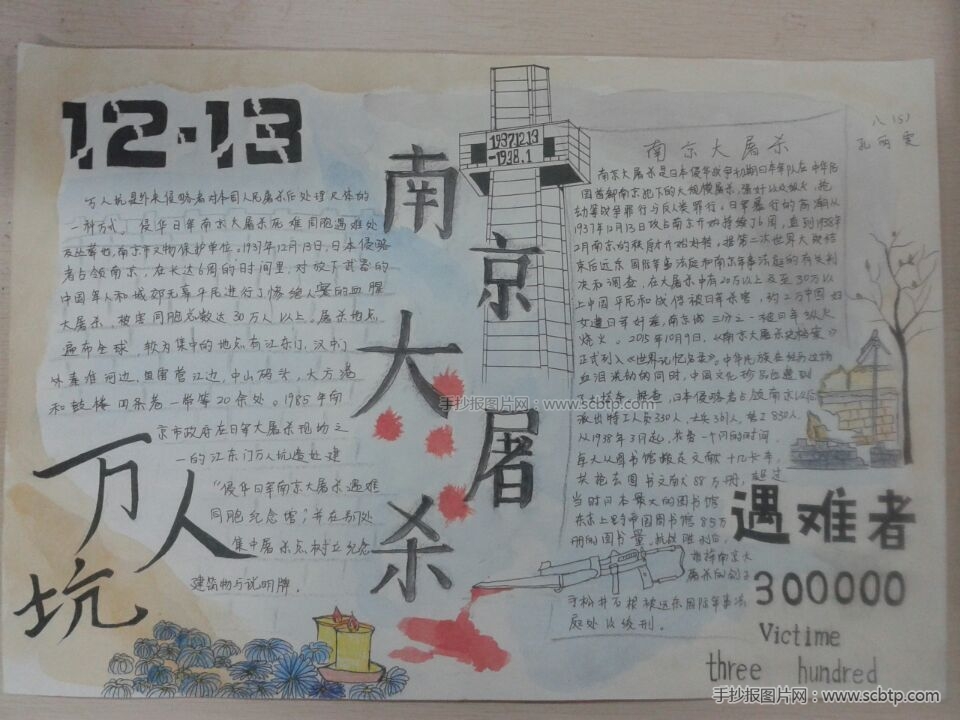 12·13
万人坑是外来侵略者对本国人民屠杀后处理尸体的
一种方式。侵华日军南京大屠杀死难同胞遇难处
及丛葬地,南京市文物保护单位。1937年12月13日,日本侵略
者占领南京,在长达6周的时间里,对放下武器的
中国军人和城郊无辜平民进行了惨绝人寰的血腥
大屠杀,被害同胞总数达30万人以上。屠杀地点
遍布全球,较为集中的地点有江东门,汉中门
外秦淮河边,
江边,中山码头,大方巷
和鼓楼四条巷一带等20余处。1985年南
京市政府在日军大屠杀现场之
一的江东门万人坑遗址建
“侵华日军南京大屠杀遇难
同胞纪念馆”,并在别处
集中屠杀点树立纪念
建筑物与说明牌。
万人
坑
南京大屠杀
193712.13
-1938.1
手抄报图片网:www.scbtp.com
八(5)
南京大屠杀
南京大屠杀是日本侵华战争初期日本军队在中华民
国首都南京犯下的大规模屠杀,强奸以及纵火、抢
劫等战争罪行与反人类罪行。日军暴行的高潮从
1937年12月13日攻占南京开始持续了6周,直到1938年
2月南京的秩序才开始好转。据第二次世界大战结
束后远东国际军事法庭和南京军事法庭的有关判
决和调查,在大屠杀中有20万以上乃至30万以
上中国平民和战俘被日军杀害,约2万中国妇
女遭日军奸淫,南京城三分之一被日军纵火
烧火。2015年10月9日,《南京大屠杀史档案》
正式列入《世界记忆名录》。中华民族在经历这场
血泪流劫的同时,中国文化珍品也遭到
了大掠夺。据查,日本侵略者占领南京以后
派出特工人员330人、士兵367人、苦工830人,
从1938年3月起,花费一个月的时间
每天从图书馆搬走文献十几卡车,
共抢去图书文献88万册,超过
当时日本最大的图书馆
东京上野帝国图书馆85万
册的图书量。抗战胜利后,
指挥南京大
屠杀的刽子
手松井石根被远东国际军事法
庭处以绞刑。
遇难者
300000
Victime
three hundred
手抄报图片网:www.scbtp.com